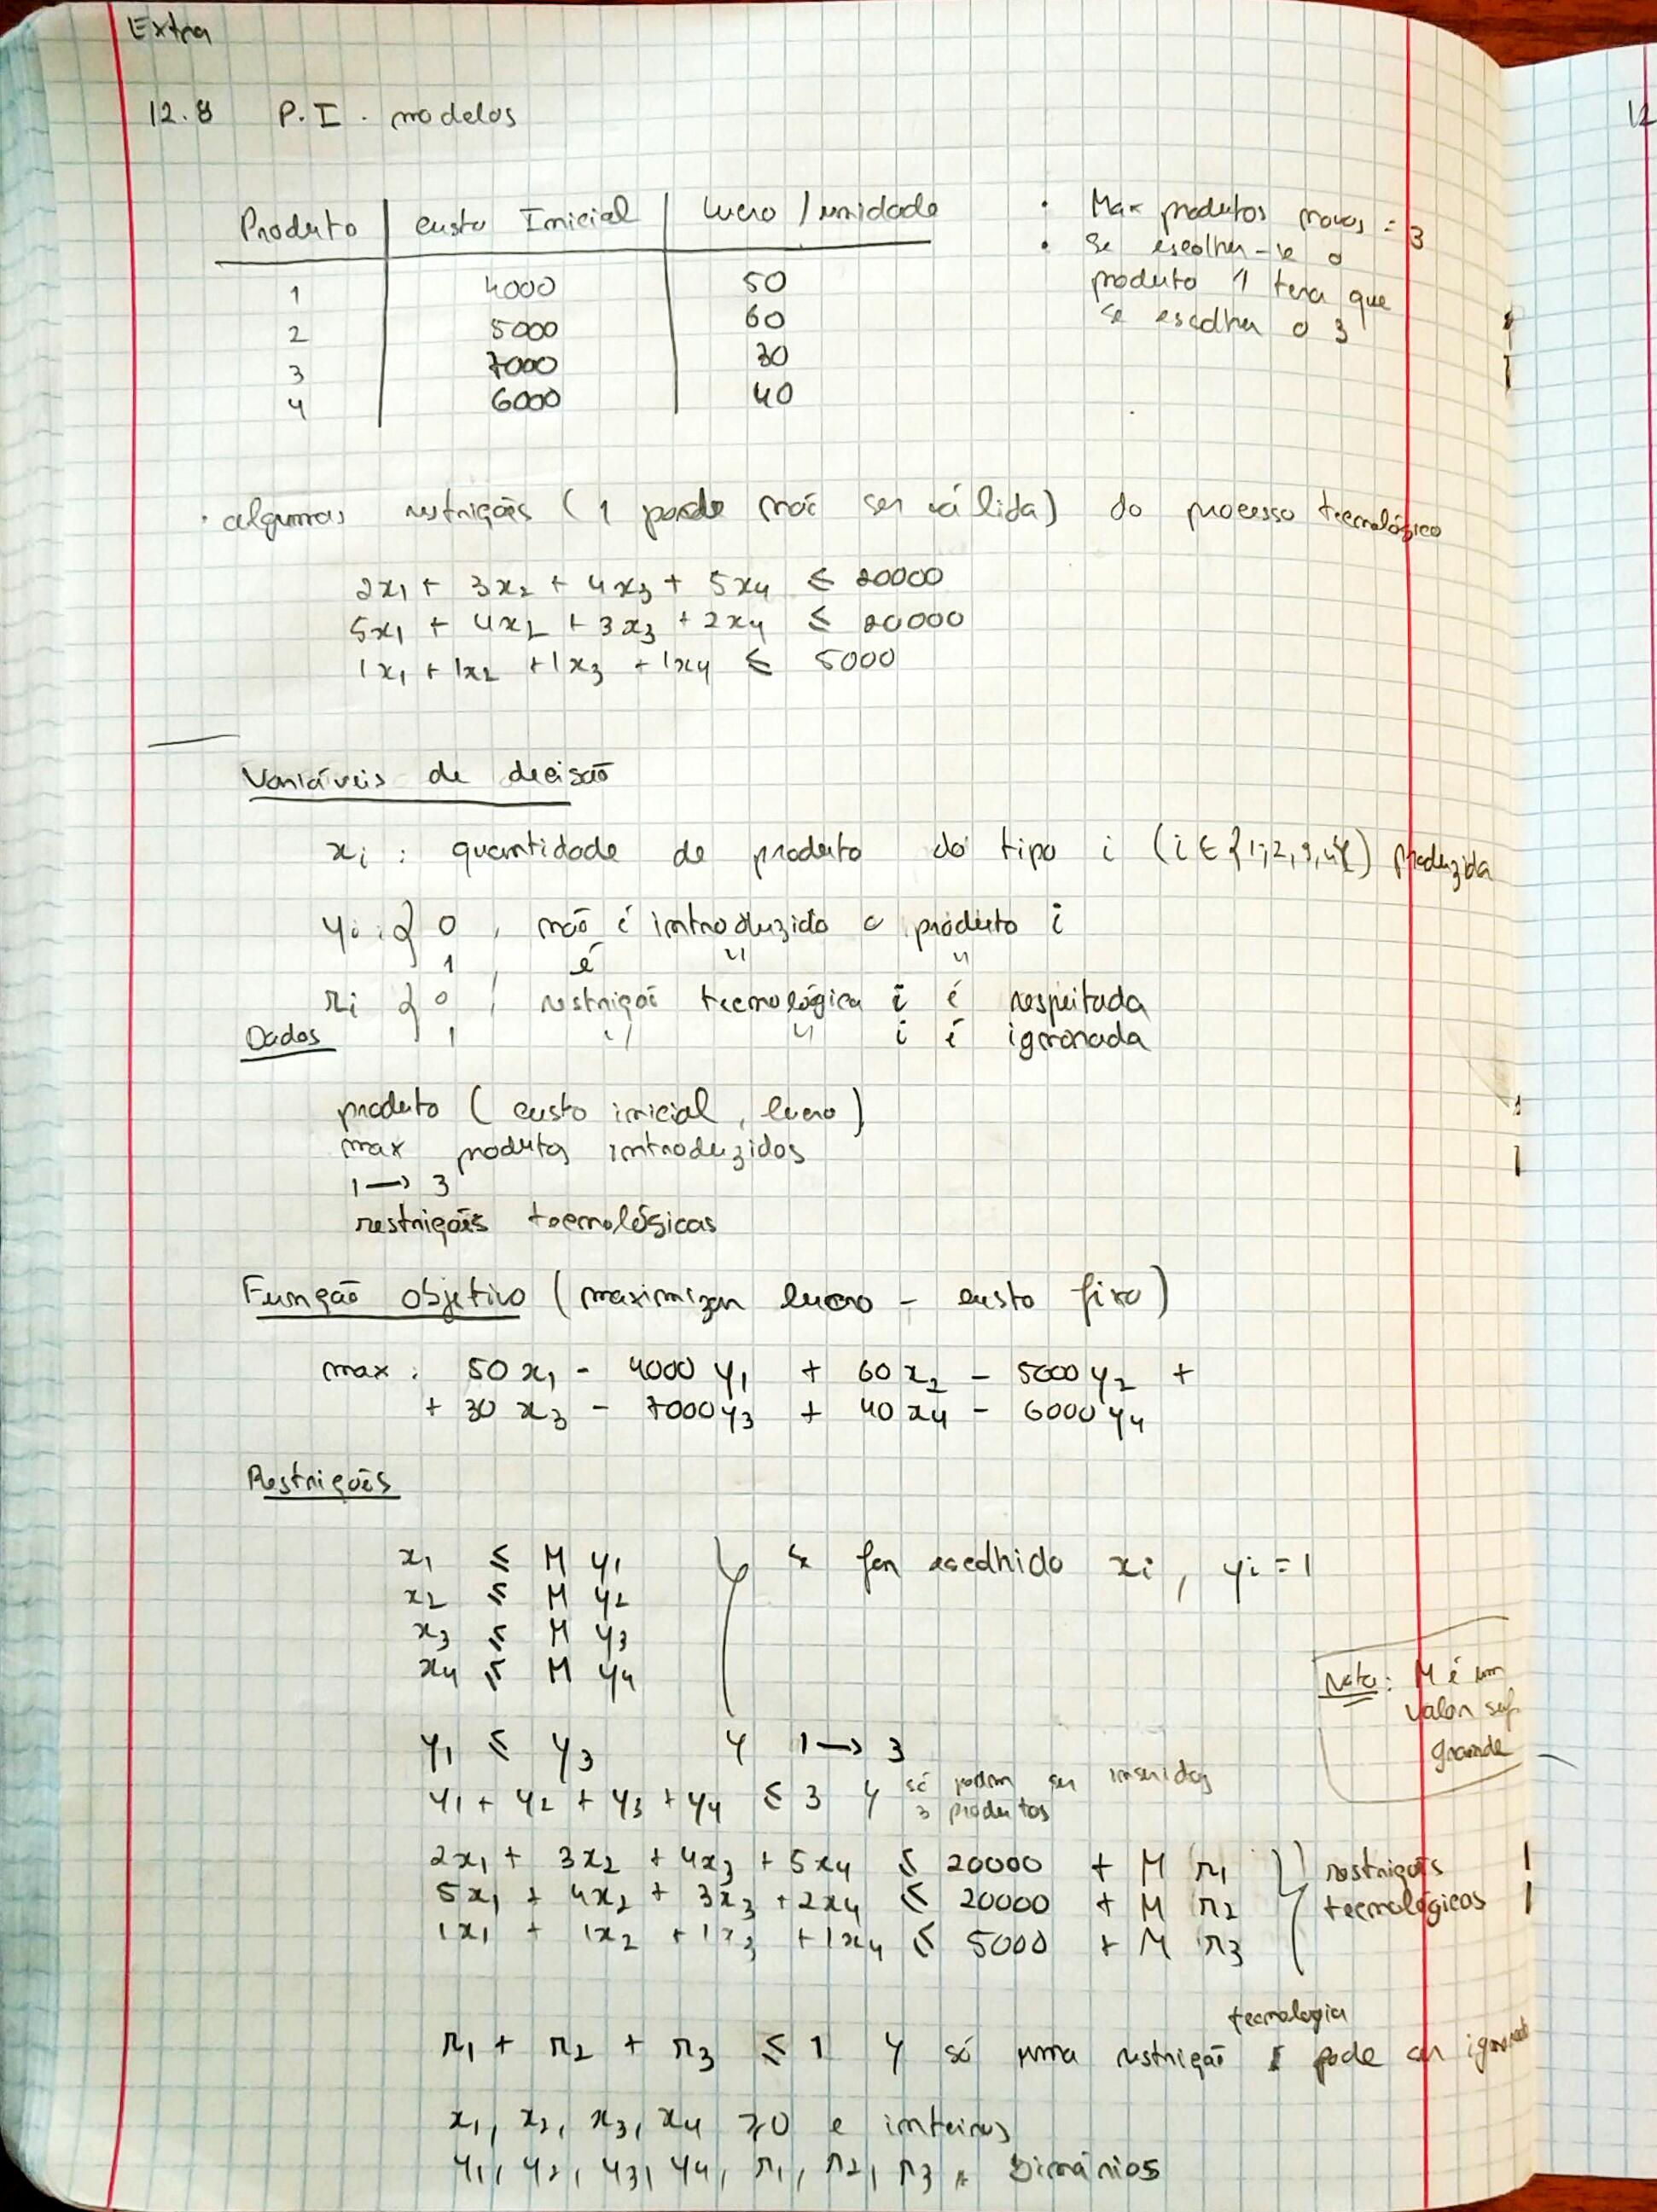 Extra
12.8 P.I. modelos
Produto | Custo Inicial | Lucro / unidade
1 4000 50
2 5000 60
3 7000 30
4 6000 40
• Max produtos novos = 3
• Se escolher-se o
produto 1 tera que
se escolher o 3
• algumas restrições (1 pode não ser válida) do processo tecnológico
2x₁ + 3x₂ + 4x₃ + 5x₄ ≤ 20000
5x₁ + 4x₂ + 3x₃ + 2x₄ ≤ 20000
1x₁ + 1x₂ + 1x₃ + 1x₄ ≤ 5000
Variáveis de decisão
xᵢ : quantidade de produto do tipo i (i ∈ {1,2,3,4}) produzida
yᵢ : { 0 , não é introduzido o produto i
1 , é " "
rᵢ { 0 , restrição tecnológica i é respeitada
1 " " i é ignorada
Dados
produto (custo inicial, lucro)
max produtos introduzidos
1 → 3
restrições tecnológicas
Função objetivo (maximizar lucro - custo fixo)
max : 50x₁ - 4000y₁ + 60x₂ - 5000y₂ +
+ 30x₃ - 7000y₃ + 40x₄ - 6000y₄
Restrições
x₁ ≤ M y₁
x₂ ≤ M y₂
x₃ ≤ M y₃
x₄ ≤ M y₄
} se for escolhido xᵢ, yᵢ = 1
Nota: M é um
valor suf.
grande
y₁ ≤ y₃ } 1 → 3
y₁ + y₂ + y₃ + y₄ ≤ 3 } só podem ser inseridos
3 produtos
2x₁ + 3x₂ + 4x₃ + 5x₄ ≤ 20000 + M r₁
5x₁ + 4x₂ + 3x₃ + 2x₄ ≤ 20000 + M r₂
1x₁ + 1x₂ + 1x₃ + 1x₄ ≤ 5000 + M r₃
} restrições
tecnológicas
tecnologia
r₁ + r₂ + r₃ ≤ 1 } só uma restrição pode ser
x₁, x₂, x₃, x₄ ≥ 0 e inteiros
y₁, y₂, y₃, y₄, r₁, r₂, r₃ binários